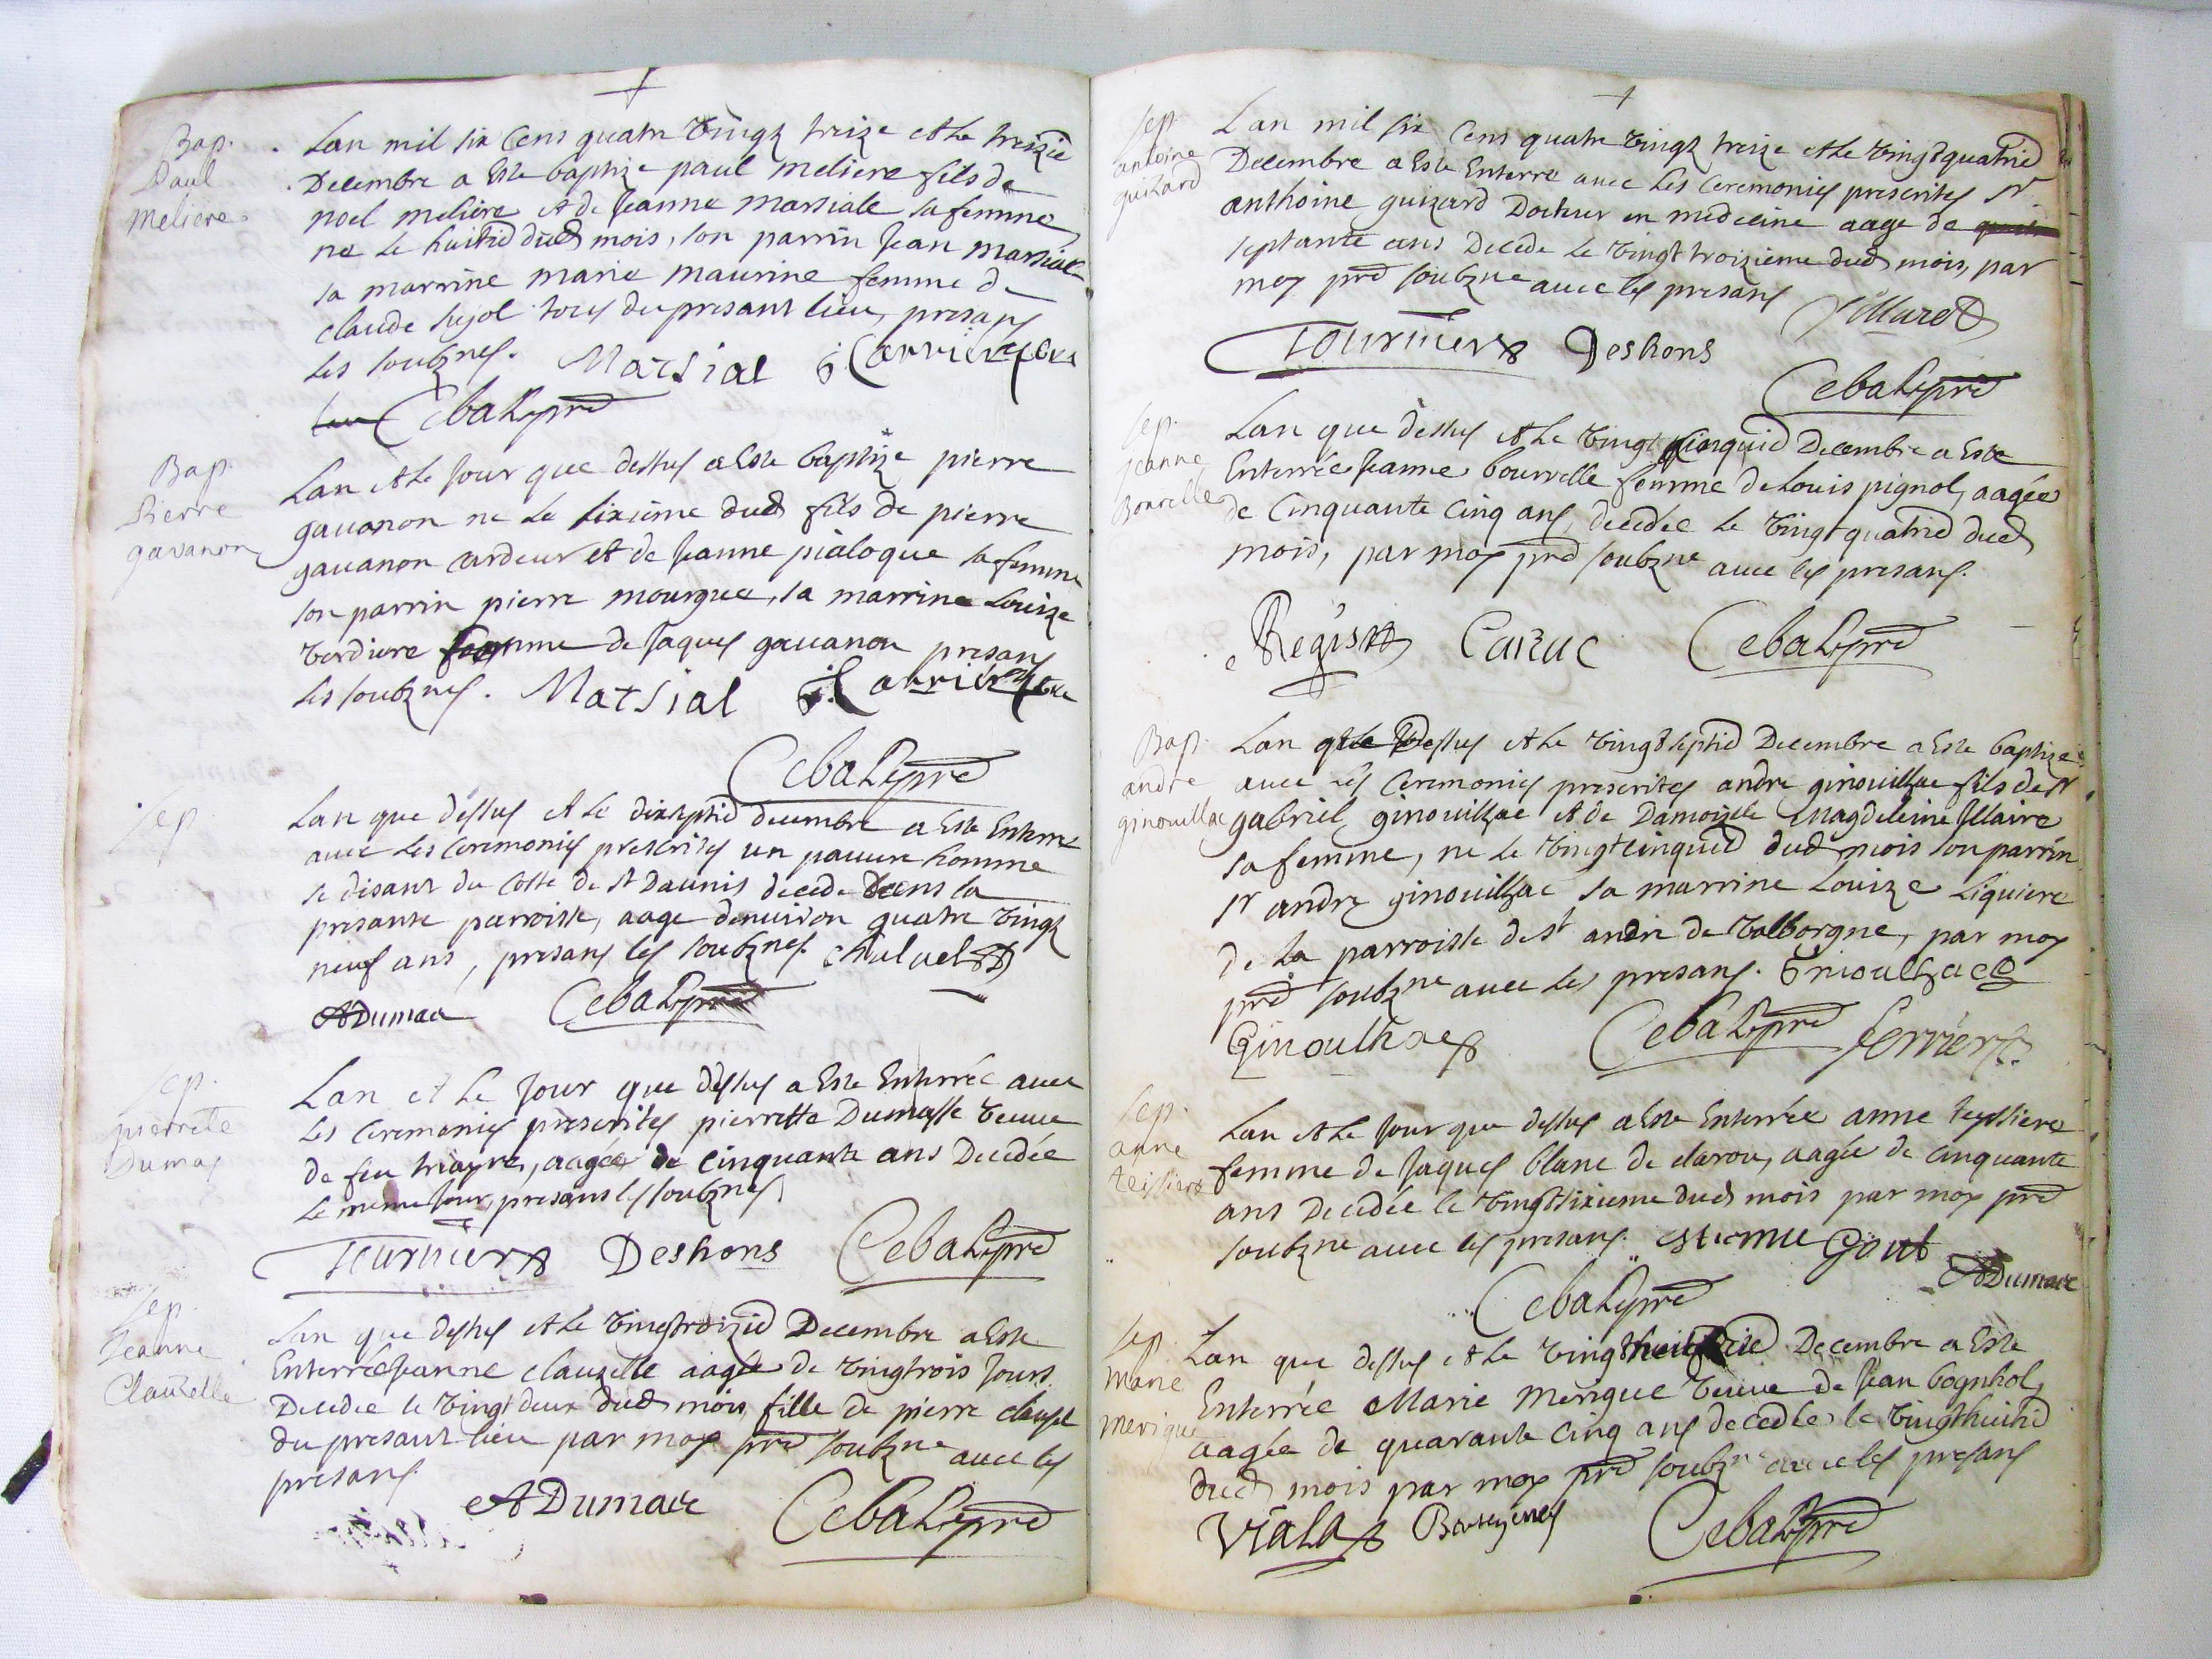 Bap.
Paul
Meliere
Lan mil six Cens quatre vingt treize et le treizie
Decembre a este baptize paul meliere fils de
noel meliere et de Jeanne martiale sa femme
ne le huitie dud mois, son parrin Jean martial
sa marrine marie maurine femme de
claude pujol tous du presant lieu, presans
les soubznes. Marsial
Cebal pre
Bap.
Pierre
gavanon
Lan et le Jour que dessus a este baptize pierre
gauanon ne le sixieme dud fils de pierre
gauanon cardeur et de Jeanne pialogue sa femme
son parrin pierre mourgue, sa marrine Louize
verdiere femme de Jaques gauanon presans
les soubznes. Marsial
Cebal pre
Sep.
Lan que dessus et le dixseptie decembre a este Enterre
avec les Ceremonies prescrites un pauvre homme
se disant du Coste de st Daunis decede dans la
presante parroisse, aage denuiron quatre vingt
neuf ans, presans les soubznes.
ADumas Cebal pre
Sep.
pierrete
Dumas
Lan et le Jour que dessus a este Enterrée avec
les Ceremonies prescrites pierrette Dumasse veuve
de feu , aagée de cinquante ans Decedée
le meme Jour, presans les soubznes.
Tournier Deshons Cebal pre
Sep.
Jeanne
Clauzelle
Lan que dessus et le vingtroizie Decembre a este
Enterrée Jeanne clauzelle aagée de vingtrois Jours
Decedee le vingt deux dud mois, fille de pierre clauzel
du presant lieu par moy pre soubzne avec les
presans.
ADumas Cebal pre
Sep.
antoine
guizard
Lan mil six Cens quatre vingt treize et le vingtquatrie
Decembre a este Enterre avec les Ceremonies prescrites sr
anthoine guizard Docteur en medecine aage de
septante ans Decede le vingt troizieme dud mois, par
moy pre soubzne avec les presans Villaret
Tournier Deshons
Cebal pre
Sep.
Jeanne
Bourelle
Lan que dessus et le vingt cinquie Decembre a este
Enterrée Jeanne bourrelle femme de Louis pignol, aagée
de Cinquante Cinq ans, decedée le vingt quatrie dud
mois, par moy pre soubzne avec les presans.
Regis Carac Cebal pre
Bap.
andre
ginouillac
Lan que dessus et le vingt septie Decembre a este baptize
avec les Ceremonies prescrites andre ginouilhac fils de sr
gabriel ginouilhac et de Damoizele Magdeleine Illaire
sa femme, ne le vingtcinquie dud mois son parrin
sr andre ginouilhac sa marrine Louize Liquiere
de la parroisse de st andre de valborgne, par moy
pre soubzne avec les presans. Ginoulhac
Ginoulhac Cebal pre ferrier
Sep.
anne
teissiere
Lan et le Jour que dessus a este Enterrée anne teyssiere
femme de Jaques blanc de clarou, aagée de Cinquante
ans Decedée le vingtsixieme dud mois par moy pre
soubzne avec les presans. estienne Gout
ADumas
Cebal pre
Sep.
Marie
Merique
Lan que dessus et le Decembre a este
Enterrée Marie Merigue veuve de Jean bagnhol,
aagée de quarante Cinq ans decedée le vingthuitie
dud mois par moy pre soubzne avec les presans
Viala Cebal pre